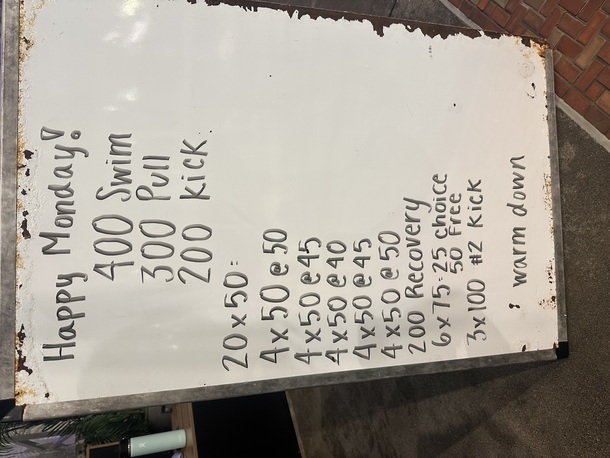 Happy Monday!
400 Swim
300 Pull
200 kick
20x50:
4x50 @ 50
4x50 @ 45
4x50 @ 40
4x50 @ 45
4x50 @ 50
200 Recovery
6x75: 25 choice
50 Free
3x100 #2 kick
warm down